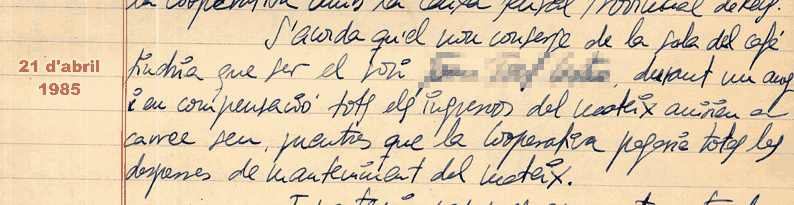 la cooperativa amb la Caixa Rural Provincial de
S'acorda qu'el nou conserge de la sala del café
21 d'abril
1985
tindria que ser el soci, durant un any
i en compensació tots els ingressos del mateix anirien a
carrec seu, mentres que la Cooperativa pagaria totes les
despesses de manteniment del mateix.